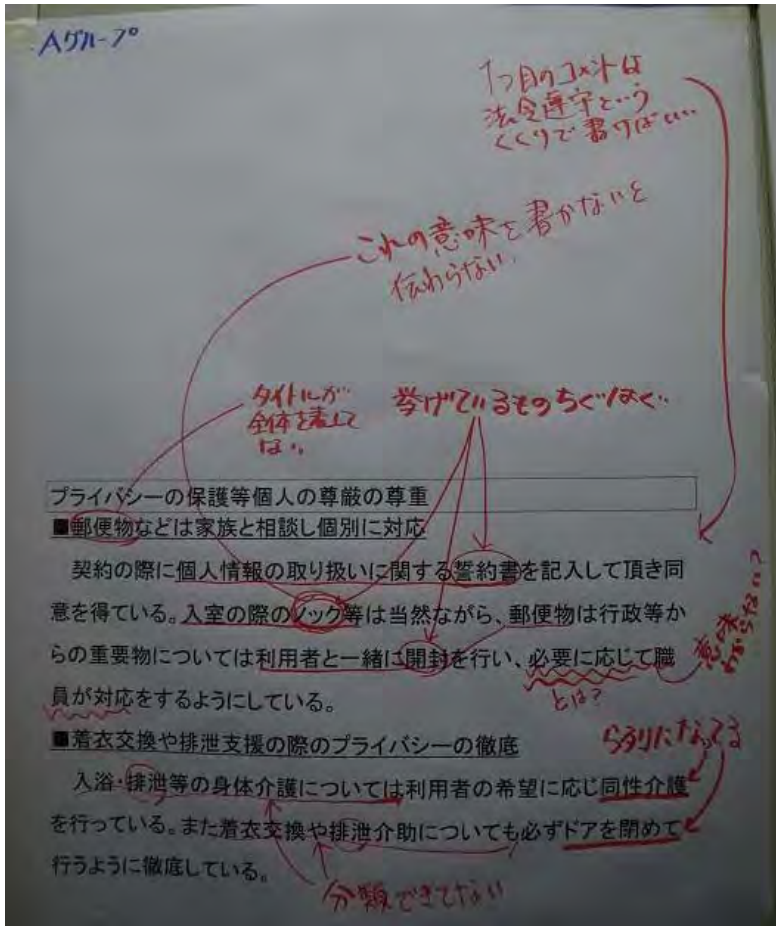 Aグループ
1つ目のコメントは
法令遵守という
くくりで書けばいい…
これの意味を書かないと
伝わらない。
タイトルが
全体を
ない。
挙げているものちぐはぐ…
プライバシーの保護等個人の尊厳の尊重
■郵便物などは家族と相談し個別に対応
契約の際に個人情報の取り扱いに関する誓約書を記入して頂き同
意を得ている。入室の際のノック等は当然ながら、郵便物は行政等か
らの重要物については利用者と一緒に開封を行い、必要に応じて職
員が対応をするようにしている。
とは?
意味
わからない?
■着衣交換や排泄支援の際のプライバシーの徹底
になってる
入浴・排泄等の身体介護については利用者の希望に応じ同性介護
を行っている。また着衣交換や排泄介助についても必ずドアを閉めて
行うように徹底している。
分類できてない